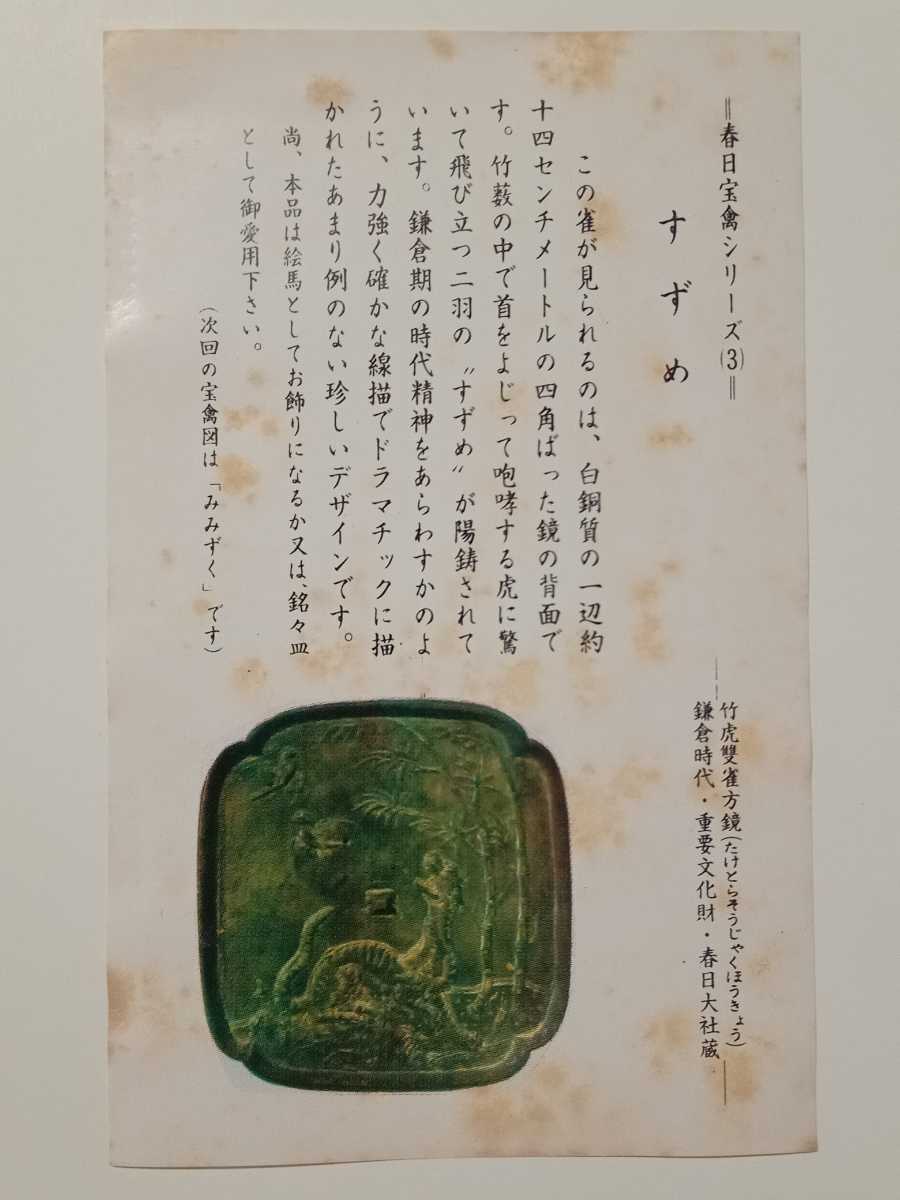 ＝春日宝禽シリーズ(3)＝
すずめ
竹虎雙雀方鏡(たけとらそうじゃくほうきょう)
鎌倉時代・重要文化財・春日大社蔵
この雀が見られるのは、白銅質の一辺約
十四センチメートルの四角ばった鏡の背面で
す。竹薮の中で首をよじって咆哮する虎に驚
いて飛び立つ二羽の〝すずめ〟が陽鋳されて
います。鎌倉期の時代精神をあらわすかのよ
うに、力強く確かな線描でドラマチックに描
かれたあまり例のない珍しいデザインです。
尚、本品は絵馬としてお飾りになるか又は、銘々皿
として御愛用下さい。
(次回の宝禽図は「みみずく」です)